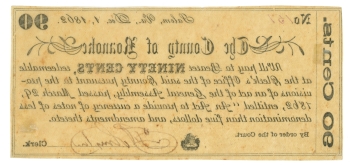 No 157
Salem, Va., Dec. 1, 1862.
90
The County of Roanoke
Will pay to Bearer NINETY CENTS, redeemable
at the Clerk's Office of the said County pursuant to the pro-
visions of an act of the General Assembly, passed March 29,
1862, entitled "An Act to provide a currency of notes of less
denomination than five dollars, and other amendments
By order of the Court.
Clerk.
90 Cents.